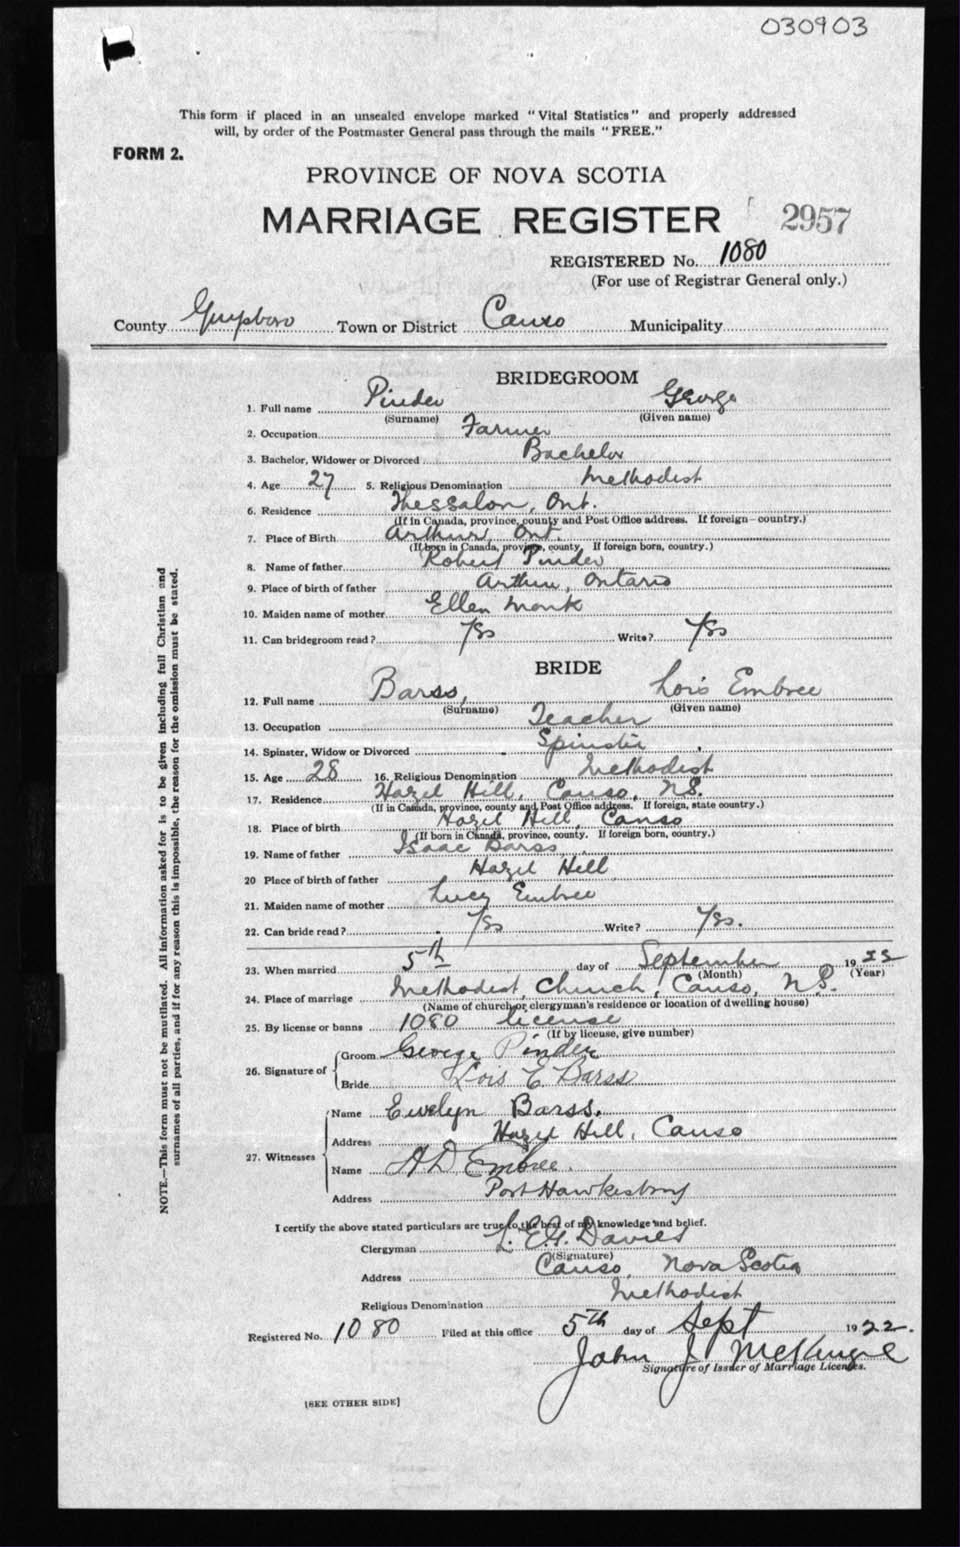 030903
This form if placed in an unsealed envelope marked "Vital Statistics" and properly addressed
will, by order of the Postmaster General pass through the mails "FREE."
FORM 2.
PROVINCE OF NOVA SCOTIA
MARRIAGE REGISTER 2957
REGISTERED No. 1080
(For use of Registrar General only.)
County Guysboro Town or District Canso Municipality
BRIDEGROOM
1. Full name Pinder George
(Surname) (Given name)
2. Occupation Farmer
3. Bachelor, Widower or Divorced Bachelor
4. Age 27 5. Religious Denomination Methodist
6. Residence Thessalon, Ont.
(If in Canada, province, county and Post Office address. If foreign—country.)
7. Place of Birth Arthur, Ont.
(If born in Canada, province, county. If foreign born, country.)
8. Name of father Robert Pinder
9. Place of birth of father Arthur, Ontario
10. Maiden name of mother Ellen Monk
11. Can bridegroom read? Yes Write? Yes
BRIDE
12. Full name Barss, Lois Embree
(Surname) (Given name)
13. Occupation Teacher
14. Spinster, Widow or Divorced Spinster
15. Age 28 16. Religious Denomination Methodist
17. Residence Hazel Hill, Canso, N.S.
(If in Canada, province, county and Post Office address. If foreign, state country.)
18. Place of birth Hazel Hill, Canso
(If born in Canada, province, county. If foreign born, country.)
19. Name of father Isaac Barss
20 Place of birth of father Hazel Hill
21. Maiden name of mother Lucy Embree
22. Can bride read? Yes Write? Yes.
23. When married 5th day of September 1922
(Month) (Year)
24. Place of marriage Methodist Church, Canso, N.S.
(Name of church or clergyman's residence or location of dwelling house)
25. By license or banns 1080 license
(If by license, give number)
26. Signature of Groom George Pinder
Bride Lois E Barss
27. Witnesses Name Evelyn Barss.
Address Hazel Hill, Canso
Name A D Embree.
Address Port Hawkesbury
I certify the above stated particulars are true to the best of my knowledge and belief.
Clergyman Davies
(Signature)
Address Canso, Nova Scotia
Religious Denomination Methodist
Registered No. 1080 Filed at this office 5th day of Sept 1922.
John J
Signature of Issuer of Marriage Licenses.
[SEE OTHER SIDE]
NOTE.—This form must not be mutilated. All information asked for is to be given including full Christian and
surnames of all parties, and if for any reason this is impossible, the reason for the omission must be stated.